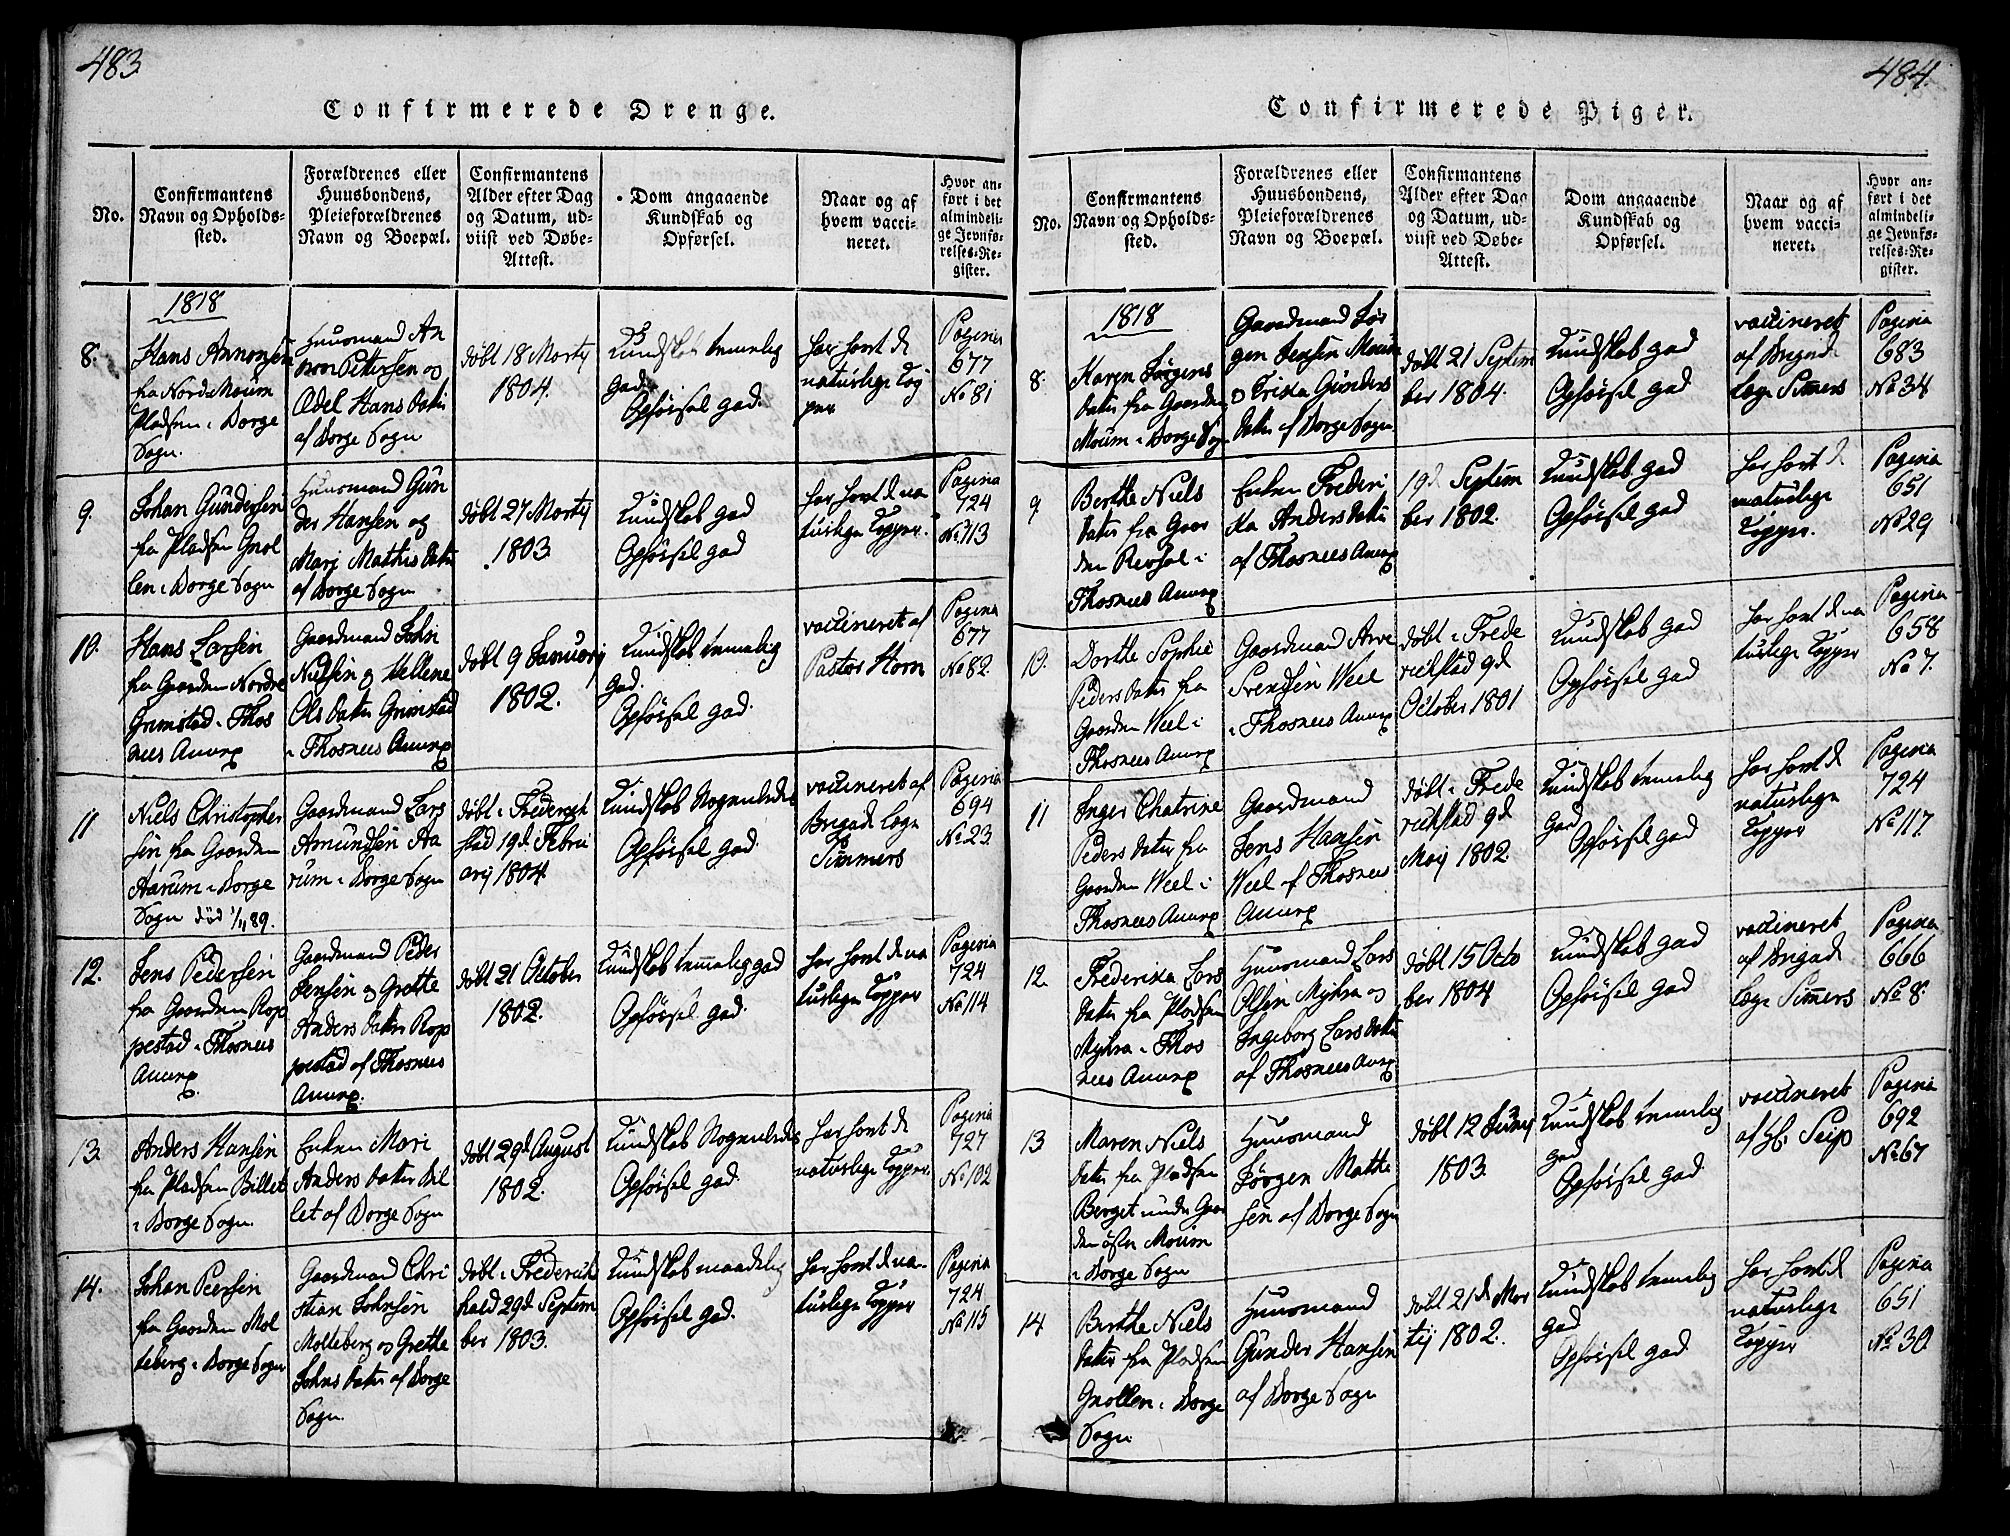 483
Confirmerede Drenge.
No.
Confirmantens
Navn og Opholds-
sted.
Forældrenes eller
Huusbondens,
Pleieforældrenes
Navn og Boepæl.
Confirmantens
Alder efter Dag
og Datum, ud-
viist ved Døbe-
Attest.
Dom angaaende
Kundskab og
Opførsel.
Naar og af
hvem vacci-
neret.
Hvor an-
ført i det
almindeli-
ge Jevnfø-
relses-Re-
gister.
1818
8.
Hans Annonsen
fra Nordre Moum
Pladsen i Borge
Sogn.
Huusmand An
non Pettersen og
Œdel Hans datter
af Borge Sogn
døbt 18 Martij
1804.
Kundskab temmelig
god
Opførsel god.
har havt de
naturlige Kop
per
Pagina
677
No 81
9.
Johan Gundersen
fra Pladsen Gnol
len i Borge Sogn
Huusmand Gun
der Hansen og
Mari Mathis datter
af Borge Sogn
døbt 27 Martij
1803
Kundskab god
Opførsel god
har havt de na
turlige Kopper.
Pagina
724
No 113
10.
Hans Larsen
fra Gaarden Nordre
Grimstad i Thos
nees Annex
Gaardmand John
Nielsen og Hellene
Ols datter Grimstad
i Thosnees Annex
døbt 9 Januarij
1802.
Kundskab temmelig
god.
Opførsel god.
vaccineret af
Pastor Horn
Pagina
677
No 82.
11
Niels Christopher
sen fra Gaarden
Aarum i Borge
Sogn død 1/11 89.
Gaardmand Lars
Amundsen Aa
rum i Borge Sogn
døbt i Friderich
stad 19d Febru
arij 1804.
Kundskab Nogenledes
Opførsel god.
vaccineret af
Brigade Læge
Simmers
Pagina
694
No 23.
12.
Jens Pedersen
fra Gaarden Rop
pestad i Thosnees
Annex.
Gaardmand Peder
Jensen og Grette
Anders datter Rop
pestad af Thosnees
Annex.
døbt 21 October
1802.
Kundskab temmelig god
Opførsel god.
har havt de na
turlige Kopper
Pagina
724
No 114
13.
Anders Hansen
fra Pladsen Billet
i Borge Sogn.
Enken Mari
Anders datter Bil
let af Borge Sogn
døbt 29d August
1802.
Kundskab Nogenledes
Opførsel god.
har havt de
naturlige Kopper.
Pagina
727
No 102
14.
Johan Peersen
fra Gaarden Mol
teberg i Borge Sogn
Gaardmand Chri
stian Johnsen
Molteberg og Grethe
Johns datter af Borge
Sogn.
døbt i Friderich
hald 29d Septem
ber 1803.
Kundskab maadelig
Opførsel god.
har havt de na-
turlige Kopper
Pagina
724
No 115
484.
Confirmerede Piger.
No.
Confirmantens
Navn og Opholds-
sted.
Forældrenes eller
Huusbondens,
Pleieforældrenes
Navn og Boepæl.
Confirmantens
Alder efter Dag
og Datum, ud-
viist ved Døbe-
Attest.
Dom angaaende
Kundskab og
Opførsel.
Naar og af
hvem vacci-
neret.
Hvor an-
ført i det
almindeli-
ge Jevnfø-
relses-Re-
gister.
1818
8.
Karen Jørgens
datter fra Gaarden
Moum i Borge Sogn
Gaardmand Jør
gen Jensen Moum
og Trixa Gunders
datter af Borge Sogn
døbt 21 Septem
ber 1804.
Kundskab god
Opførsel god
vaccineret
af Brigade
Læge Simmers
Pagina
683
No 34
9
Berthe Niels
datter fra Gaar
den Revhol i
Thosnees Annex
Enken Frederi
ka Anders datter
af Thosnees Annex
19d Septem
ber 1802.
Kundskab god
Opførsel god
har havt de
naturlige
Kopper.
Pagina
651
No 29
10.
Dorthe Sophie
Peders datter fra
Gaarden Weel i
Thosnees Annex
Gaardmand Arve
Svendsen Weel
i Thosnees Annex
døbt i Frede
richstad 9d
October 1801
Kundskab god
Opførsel god
har havt de na
turlige Kopper
Pagina
658
No 7.
11
Inger Chatrine
Peders datter fra
Gaarden Weel i
Thosnees Annex
Gaardmand
Jens Hansen
Weel af Thosnees
Annex
døbt i Frede
richstad 9d
Maij 1802.
Kundskab temmelig
god
Opførsel god
har havt de
naturlige
Kopper
Pagina
724
No 117.
12.
Frederika Lars
datter fra Pladsen
Myhra i Thos
nees Annex
Huusmand Lars
Olsen Myhra og
Ingeborg Lars datter
af Thosnees Annex
døbt 15 Octo
ber 1804
Kundskab god
Opførsel god
vaccineret
af Brigade
Læge Simmers
Pagina
666
No 8.
13
Maren Niels
datter fra Pladsen
Berget under Gaar
den østre Moum
i Borge Sogn
Huusmand
Jørgen Mathe
sen af Borge Sogn
døbt 12 Junij
1803.
Kundskab temmelig
god
Opførsel god.
vaccineret
af Hr. Seip
Pagina
692
No 67
14
Berthe Niels
datter fra Pladsen
Gnollen i Borge
Sogn
Huusmand
Gunder Hansen
af Borge Sogn
døbt 21de Mar
tij 1802.
Kundskab temmelig
god
Opførsel god.
har havt de
naturlige
Kopper
Pagina
651
No 30.